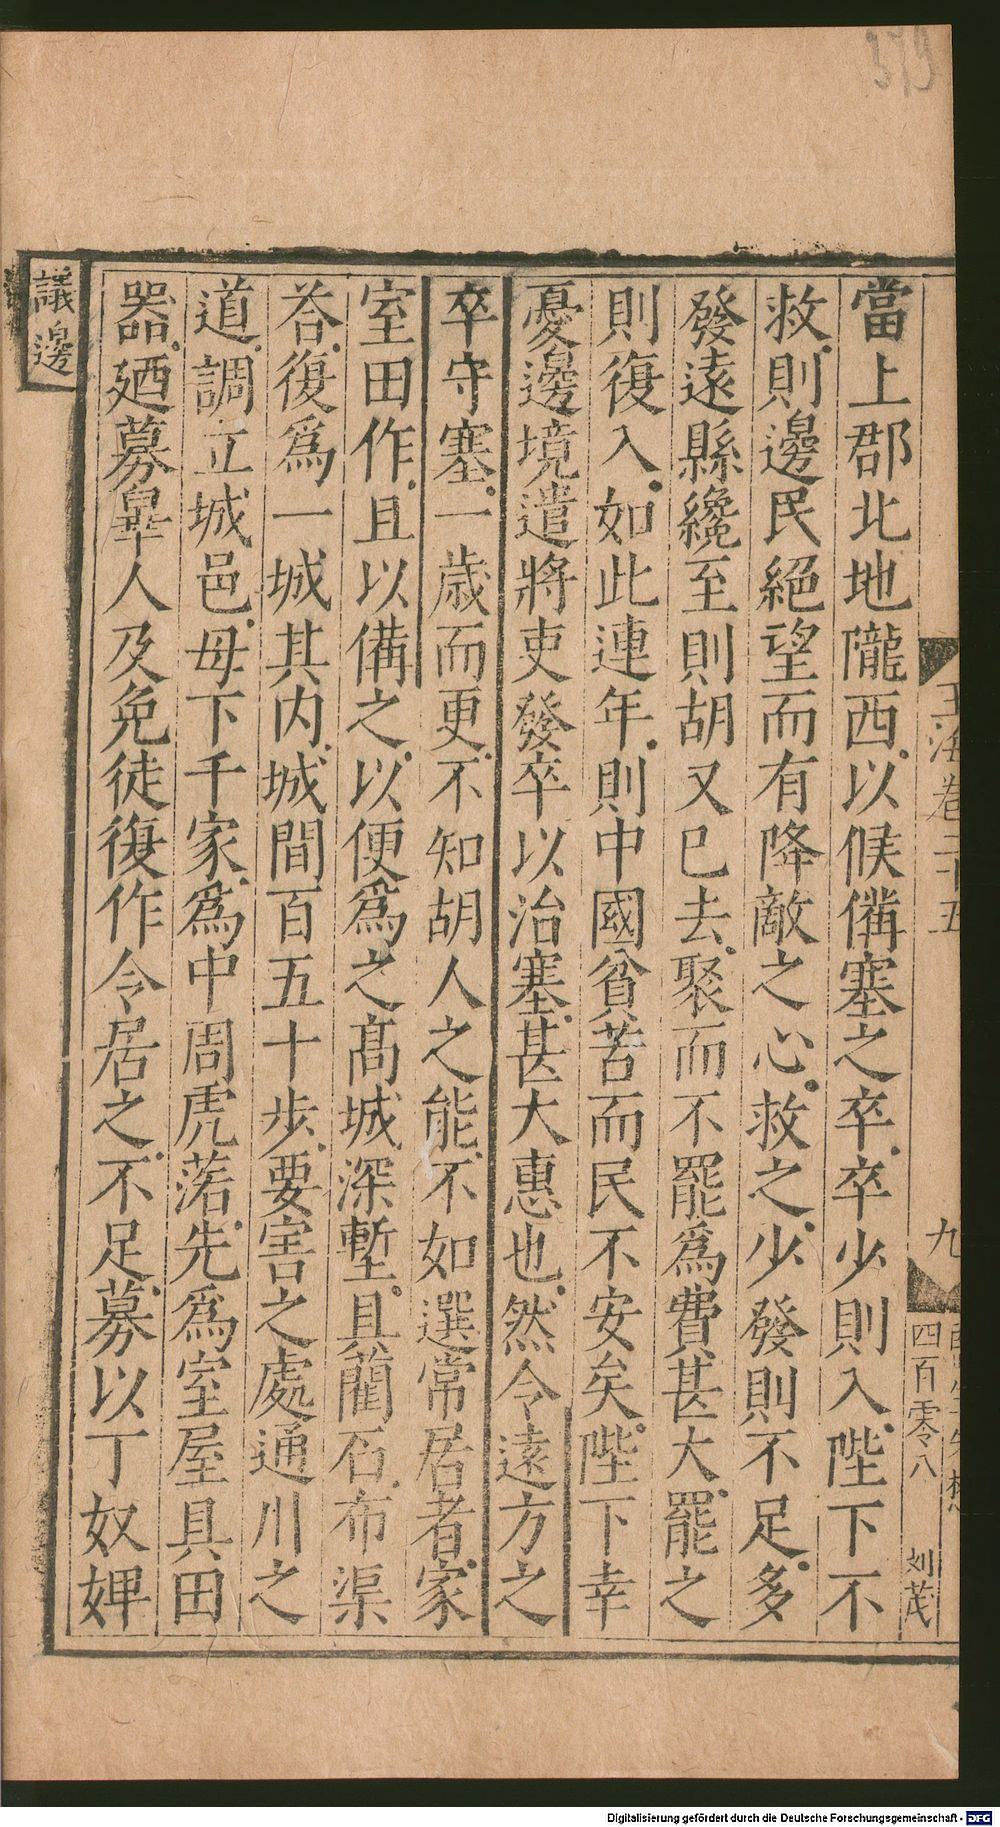 當上郡北地隴西以候備塞之卒卒少則入陛下不
救則邊民絕望而有降敵之心救之少發則不足多
發遠縣纔至則胡又已去聚而不罷為費甚大罷之
則復入如此連年則中國貧苦而民不安矣陛下幸
憂邊境遣將吏發卒以治塞甚大惠也然令遠方之
卒守塞一歲而更不知胡人之能不如選常居者家
室田作且以備之以便為之高城深塹具藺石布渠
荅復為一城其內城間百五十步要害之處通川之
道調立城邑毋下千家為中周虎落先為室屋具田
器廼募辠人及免徒復作令居之不足募以丁奴婢
議邊
玉海卷二十五
九
四百零八
刘茂
379
Digitalisierung gefördert durch die Deutsche Forschungsgemeinschaft - DFG